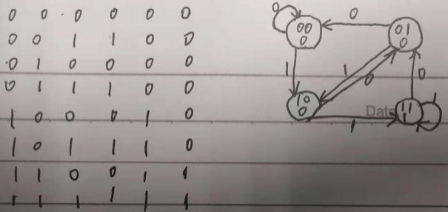 0 0 0 0 0 0
0 0 1 1 0 0
0 1 0 0 0 0
0 1 1 1 0 0
1 0 0 0 1 0
1 0 1 1 1 0
1 1 0 0 1 1
1 1 1 1 1 1
0
00
0
0
01
0
1
1
0
0
10
0
Date
11
1
1